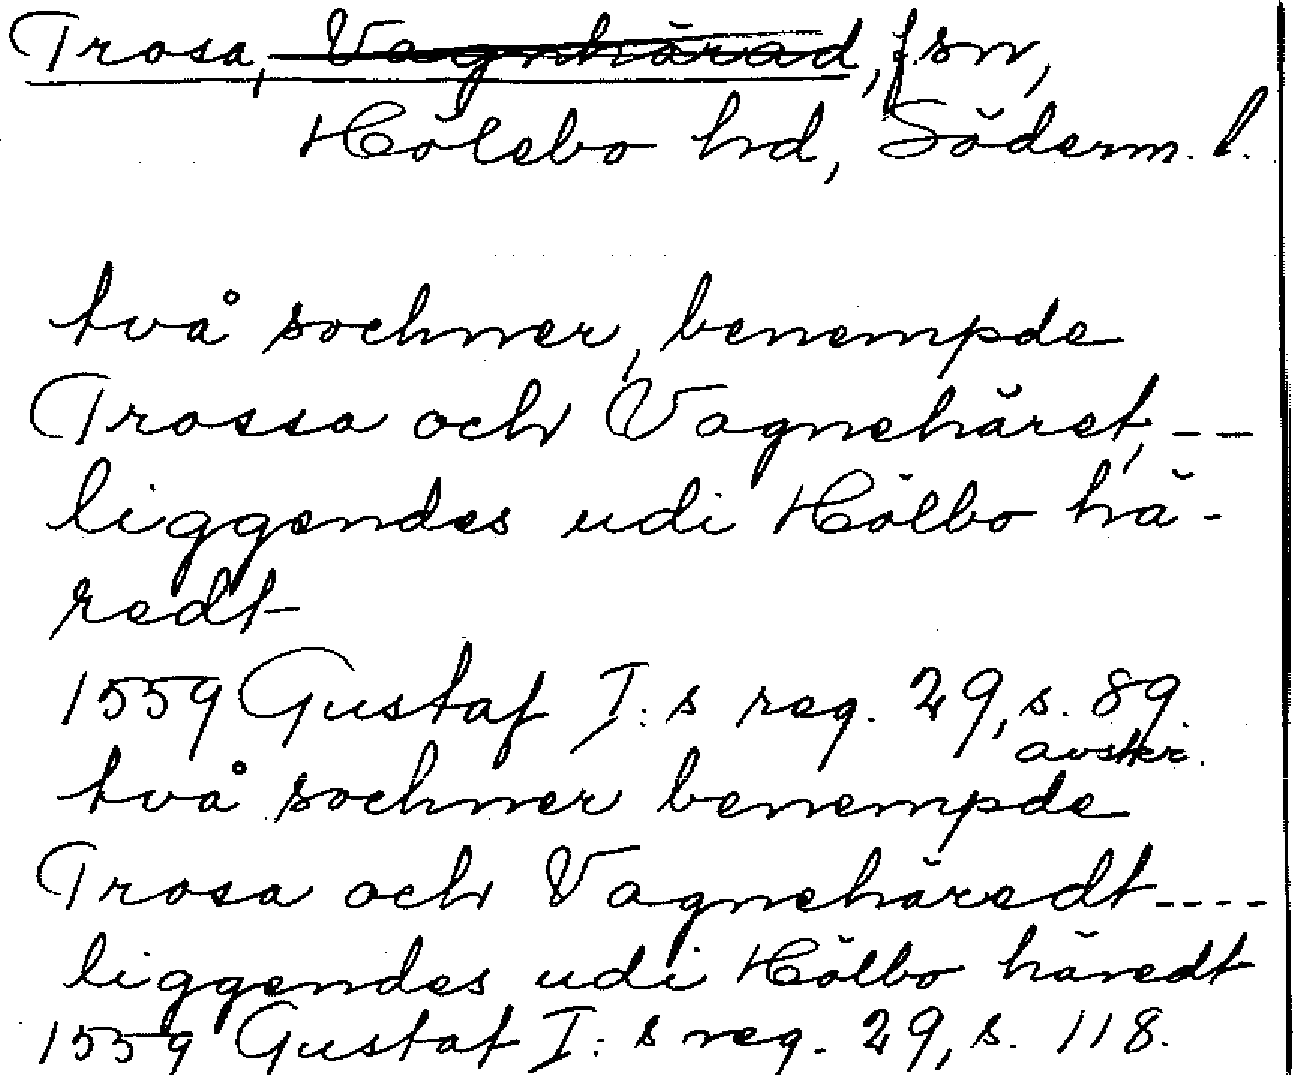 Trosa, Vagnhärad, fsn,
Hölebo hd, Söderm. l.
två sochner, benempde
Trossa och Vagnehäret, --
liggendes udi Hölbo hä-
redt
1559 Gustaf I:s reg. 29, s. 89.
avskr.
två sochner benempde
Trosa och Vagnehäredt ----
liggendes udi Hölbo häredt
1559 Gustaf I:s reg. 29, s. 118.